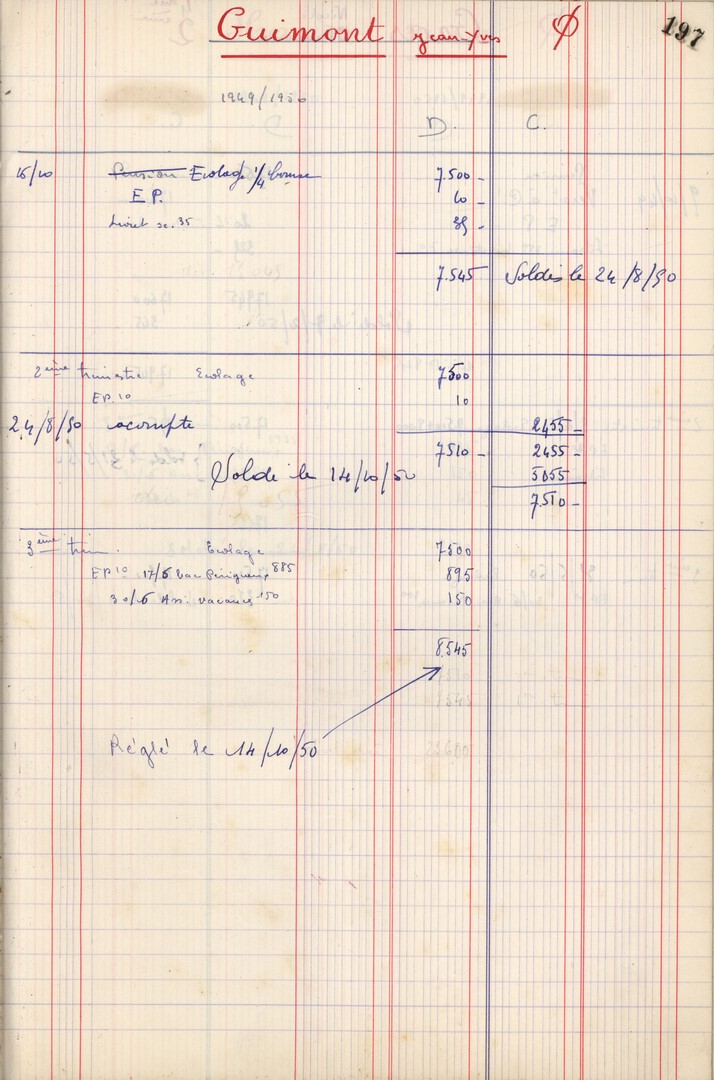 Guimont Jean-Yves φ 197
1949/1950
D. C.
15/10 Pension Ecolage 1/4 bourse 7.500 -
E P. 10 -
Livret sc. 35 35 -
7.545 Soldés le 24/8/50
2ème trimestre Ecolage 7500
EP. 10 10
24/8/50 acompte 2455 -
7510 - 2455 -
Soldé le 14/10/50 5055
7.510 -
3ème trim. Ecolage 7500
EP 10 17/5 Vac 885 895
30/6 Ass. vacances 150 150
8.545
Réglé le 14/10/50